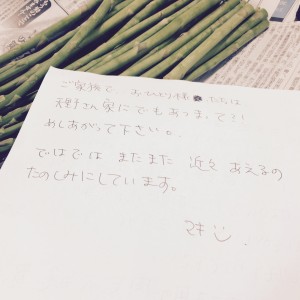 ご家族で おひとり様 または
天野さん家にでもあつまって?!
めしあがって下さい。
ではでは またまた 近々 あえるの
たのしみにしています。
マキ